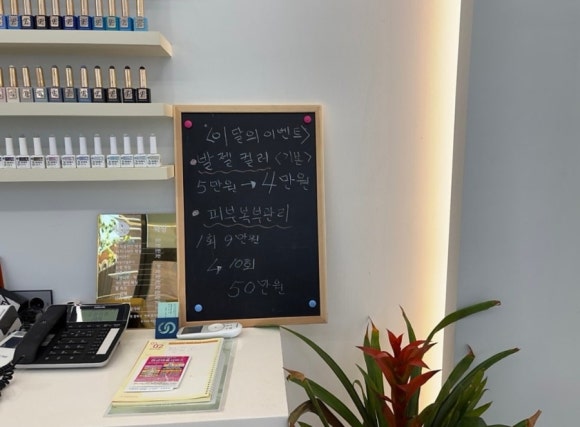 <이달의 이벤트>
발 젤 컬러 <기본>
5만원 → 4만원
피부복부관리
1회 9만원
↳ 10회
50만원